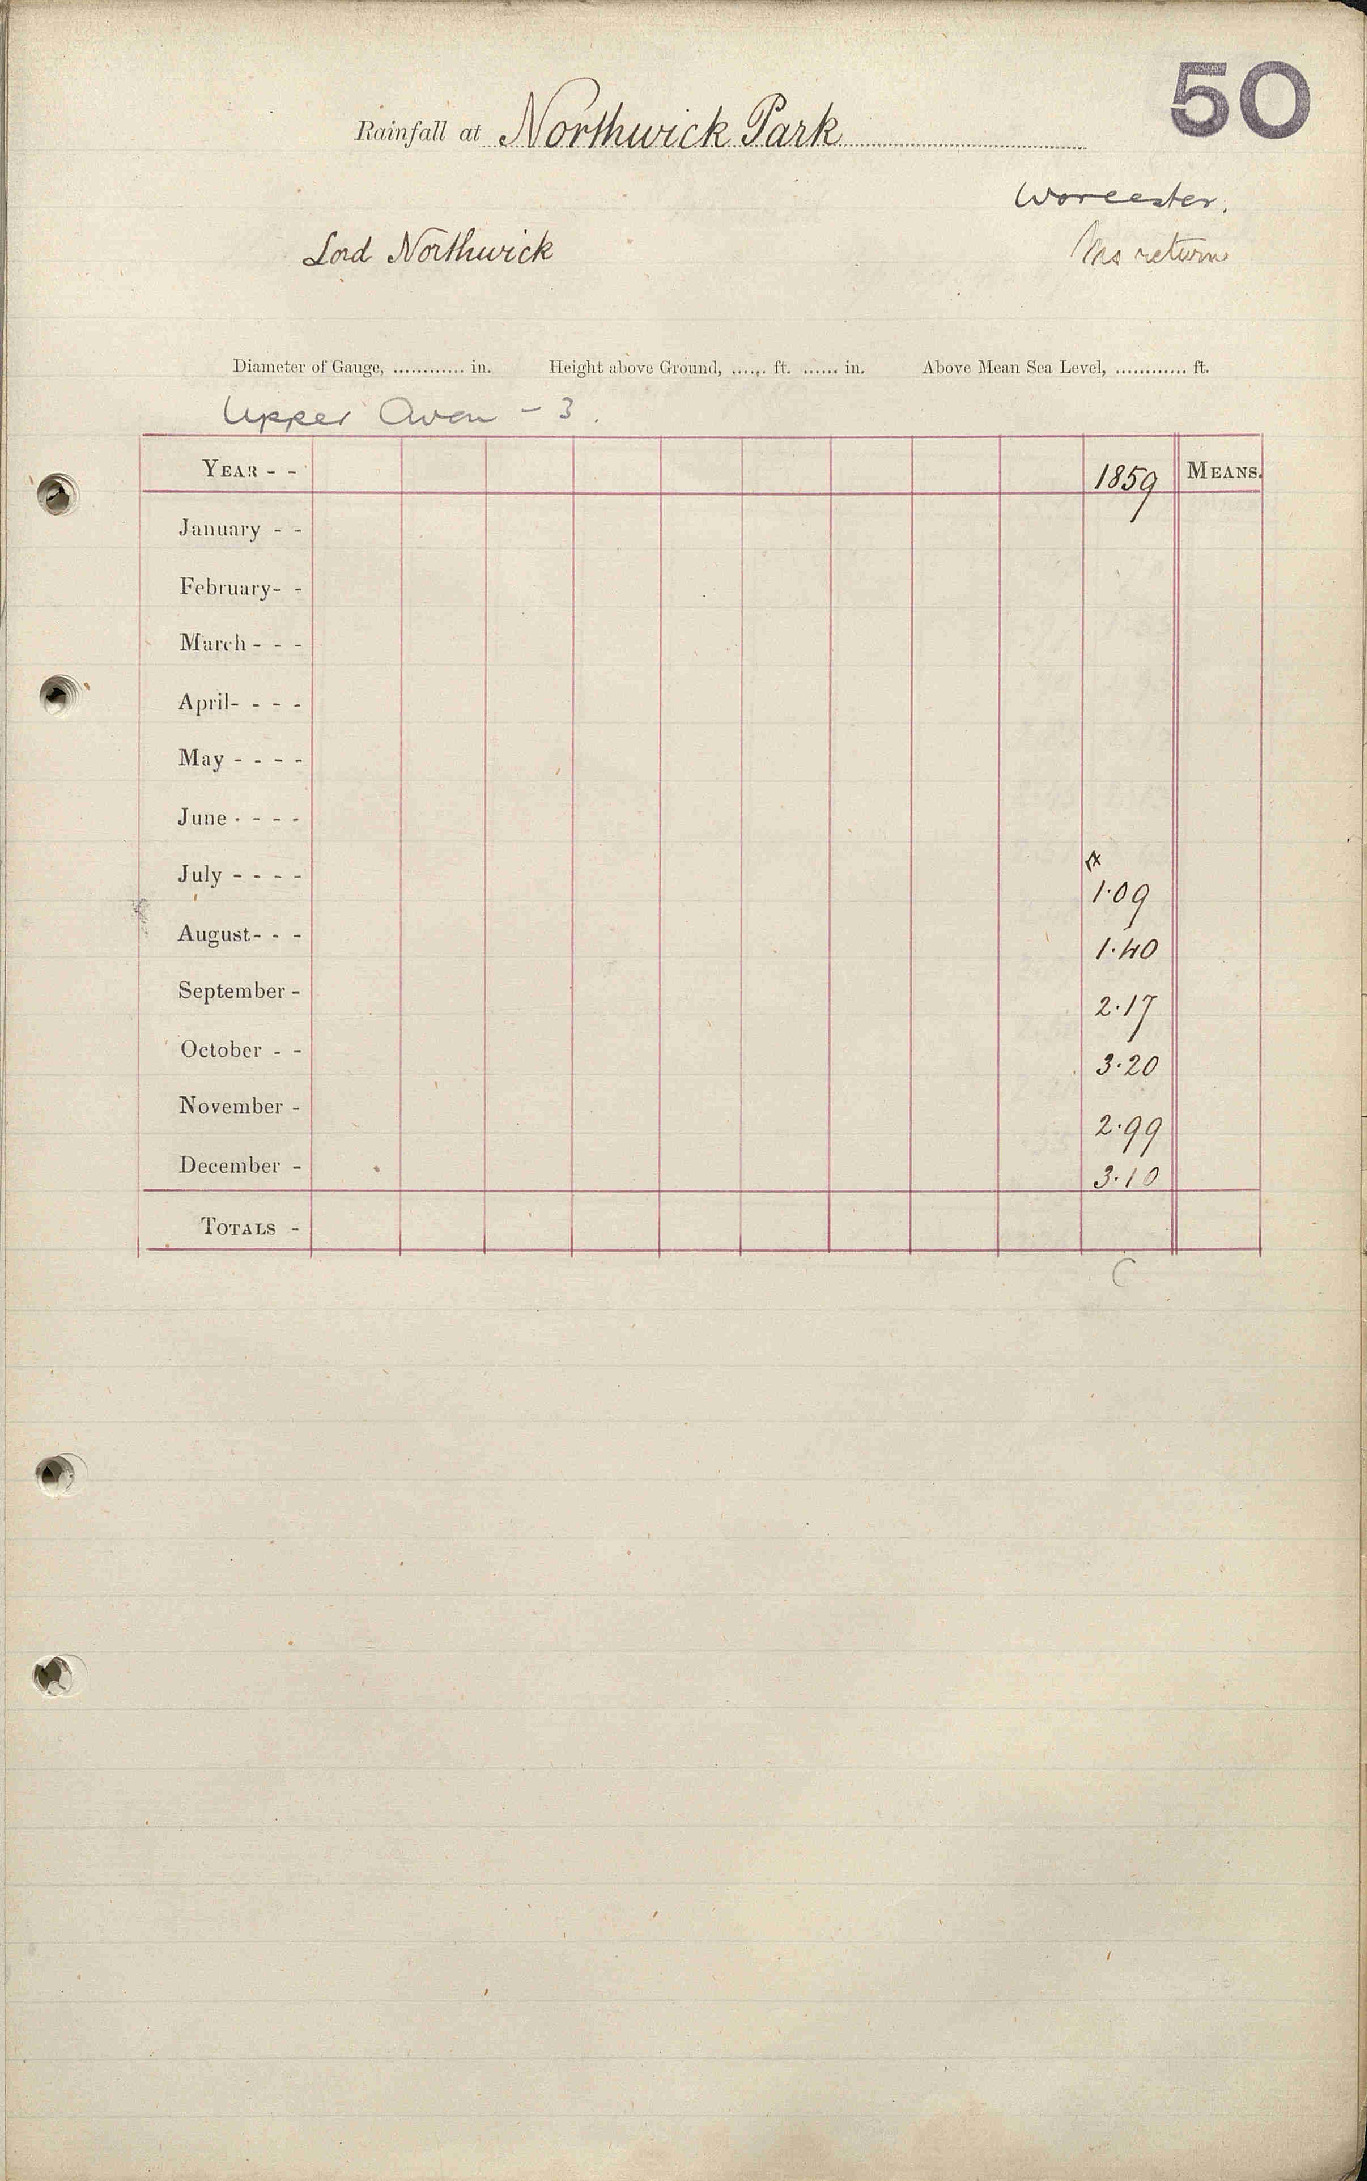 50
Rainfall at Northwick Park
Worcester.
Lord Northwick Ms return
Diameter of Gauge, ............ in. Height above Ground, ...... ft. ...... in. Above Mean Sea Level, ............ ft.
Upper Avon - 3.
YEAR - - 1859 MEANS.
January - -
February- -
March - - -
April- - - -
May - - - -
June - - - -
July - - - - 1.09
August- - - 1.40
September - 2.17
October - - 3.20
November - 2.99
December - 3.10
TOTALS -
C